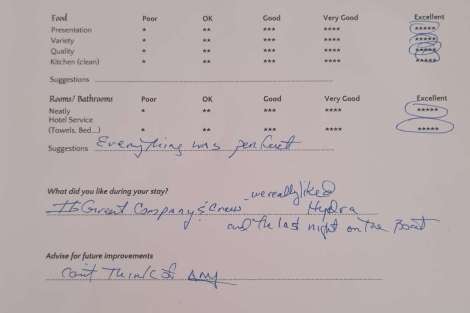 Food Poor OK Good Very Good Excellent
Presentation * ** *** **** *****
Variety * ** *** **** *****
Quality * ** *** **** *****
Kitchen (clean) * ** *** **** *****
Suggestions
Rooms/ Bathrooms Poor OK Good Very Good Excellent
Neatly * ** *** **** *****
Hotel Service
(Towels, Bed...) * ** *** **** *****
Suggestions Everything was perfect
What did you like during your stay?
we really liked
Great Company & Crew Hydra
and the last night on the Boat
Advise for future improvements
Can't Think of any